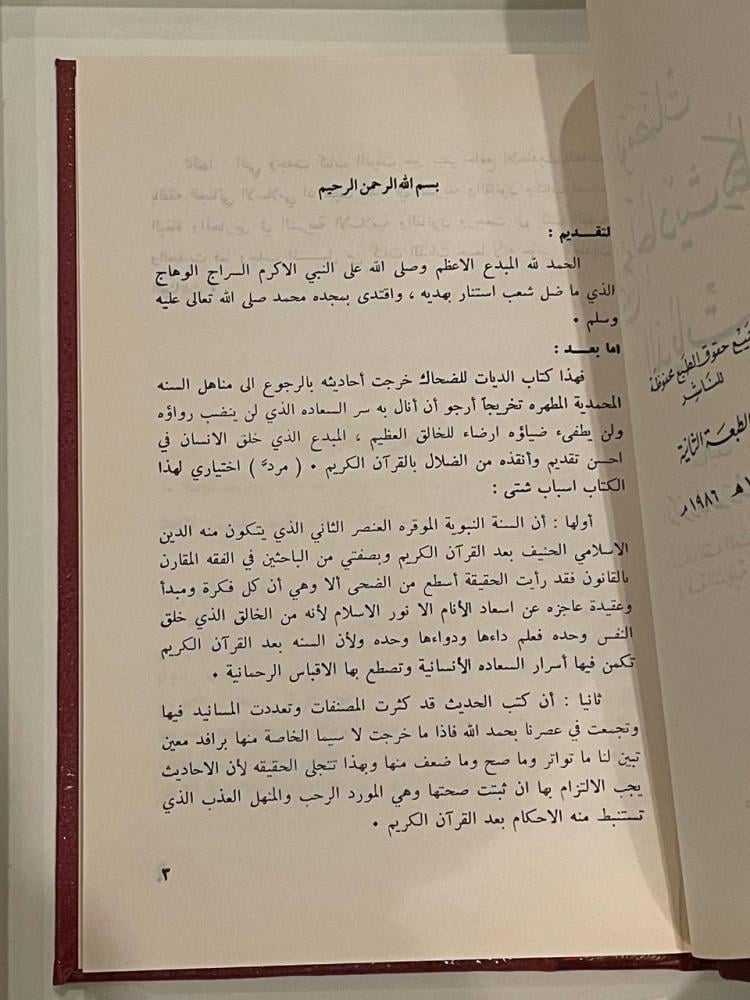 بسم الله الرحمن الرحيم
التقـــديم :
الحمد لله المبدع الاعظم وصلى الله على النبي الاكرم السراج الوهاج
الذي ما ضل شعب استنار بهديه ، واقتدى بمجده محمد صلى الله تعالى عليه
وسلم •
اما بعـــد :
فهذا كتاب الديات للضحاك خرجت أحاديثه بالرجوع الى مناهل السنه
المحمدية المطهره تخريجاً أرجو أن أنال به سر السعاده الذي لن ينضب رواؤه
ولن يطفىء ضياؤه ارضاء للخالق العظيم ، المبدع الذي خلق الانسان في
احسن تقديم وأنقذه من الضلال بالقرآن الكريم • ( مردّ ) اختياري لهذا
الكتاب اسباب شتى :
أولها : أن السنة النبوية الموقره العنصر الثاني الذي يتكون منه الدين
الاسلامي الحنيف بعد القرآن الكريم وبصفتي من الباحثين في الفقه المقارن
بالقانون فقد رأيت الحقيقة أسطع من الضحى ألا وهي أن كل فكرة ومبدأ
وعقيدة عاجزه عن اسعاد الأنام الا نور الاسلام لأنه من الخالق الذي خلق
النفس وحده فعلم داءها ودواءها وحده ولأن السنه بعد القرآن الكريم
تكمن فيها أسرار السعاده الأنسانية وتصطع بها الاقباس الرحمانية •
ثانيا : أن كتب الحديث قد كثرت المصنفات وتعددت المسانيد فيها
وتجمعت في عصرنا بحمد الله فاذا ما خرجت لا سيما الخاصة منها برافد معين
تبين لنا ما تواتر وما صح وما ضعف منها وبهذا تتجلى الحقيقه لأن الاحاديث
يجب الالتزام بها ان ثبتت صحتها وهي المورد الرحب والمنهل العذب الذي
تستنبط منه الاحكام بعد القرآن الكريم •
٣
حقوق الطبع محفوظة
للناشر
الطبعة الثانية
هـ ١٩٨٦ م